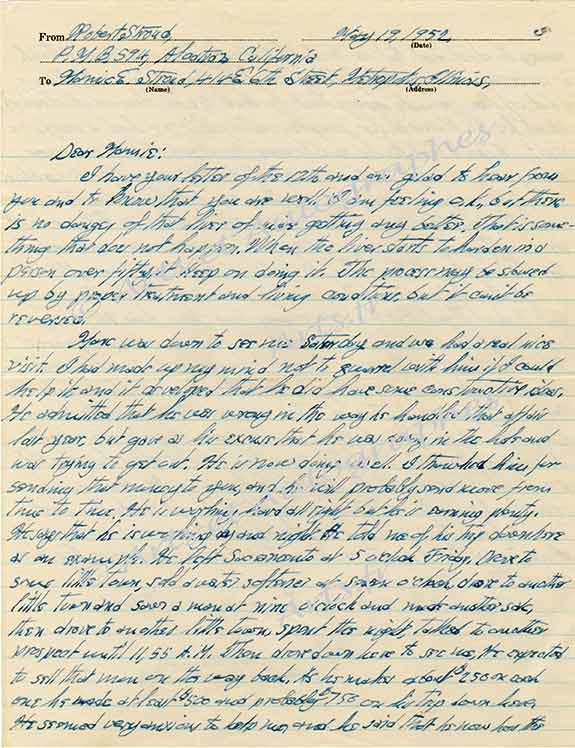 From Robert Stroud, May 19, 1952 3
(Date)
P.M.B. 594, Alcatraz California
To Mamie E Stroud, 414 E 6th Street, Metropolis, Illinois,
(Name) (Address)
Dear Mamie:
I have your letter of the 12th and am glad to hear from
you and to know that you are well. I am feeling o.k., but there
is no danger of that liver of mine getting any better. That is some-
thing that does not happen. When the liver starts to harden in a
person over fifty, it keep on doing it. The process may be slowed
up by proper treatment and living conditions, but it can't be
reversed.
was down to see me Saturday and we had a real nice
visit. I had made up my mind not to quarrel with him if I could
help it and it developed that he did have some constructive ideas.
He admitted that he was wrong in the way he handled that affair
last year, but gave as his excuse that he was in the hole and
was trying to get out. He is now doing well. I thanked him for
sending that money to you, and he will probably send more from
time to time. He is working hard all right but he is earning plenty.
He says that he is working day and night. He told me of his trip down here
as an example. He left Sacramento at 5 o'clock Friday, drove to
some little town, sold a water softener at seven o'clock, drove to another
little town and saw a man at nine o'clock and made another sale,
then drove to another little town, spent the night, talked to another
prospect until 11,55 A.M. then drove down here to see me. He expected
to sell that man on the way back. As he makes about $250 on each
one he made at least $500 and probably $750 on his trip down here.
He seemed very anxious to help me, and he said that he now has the